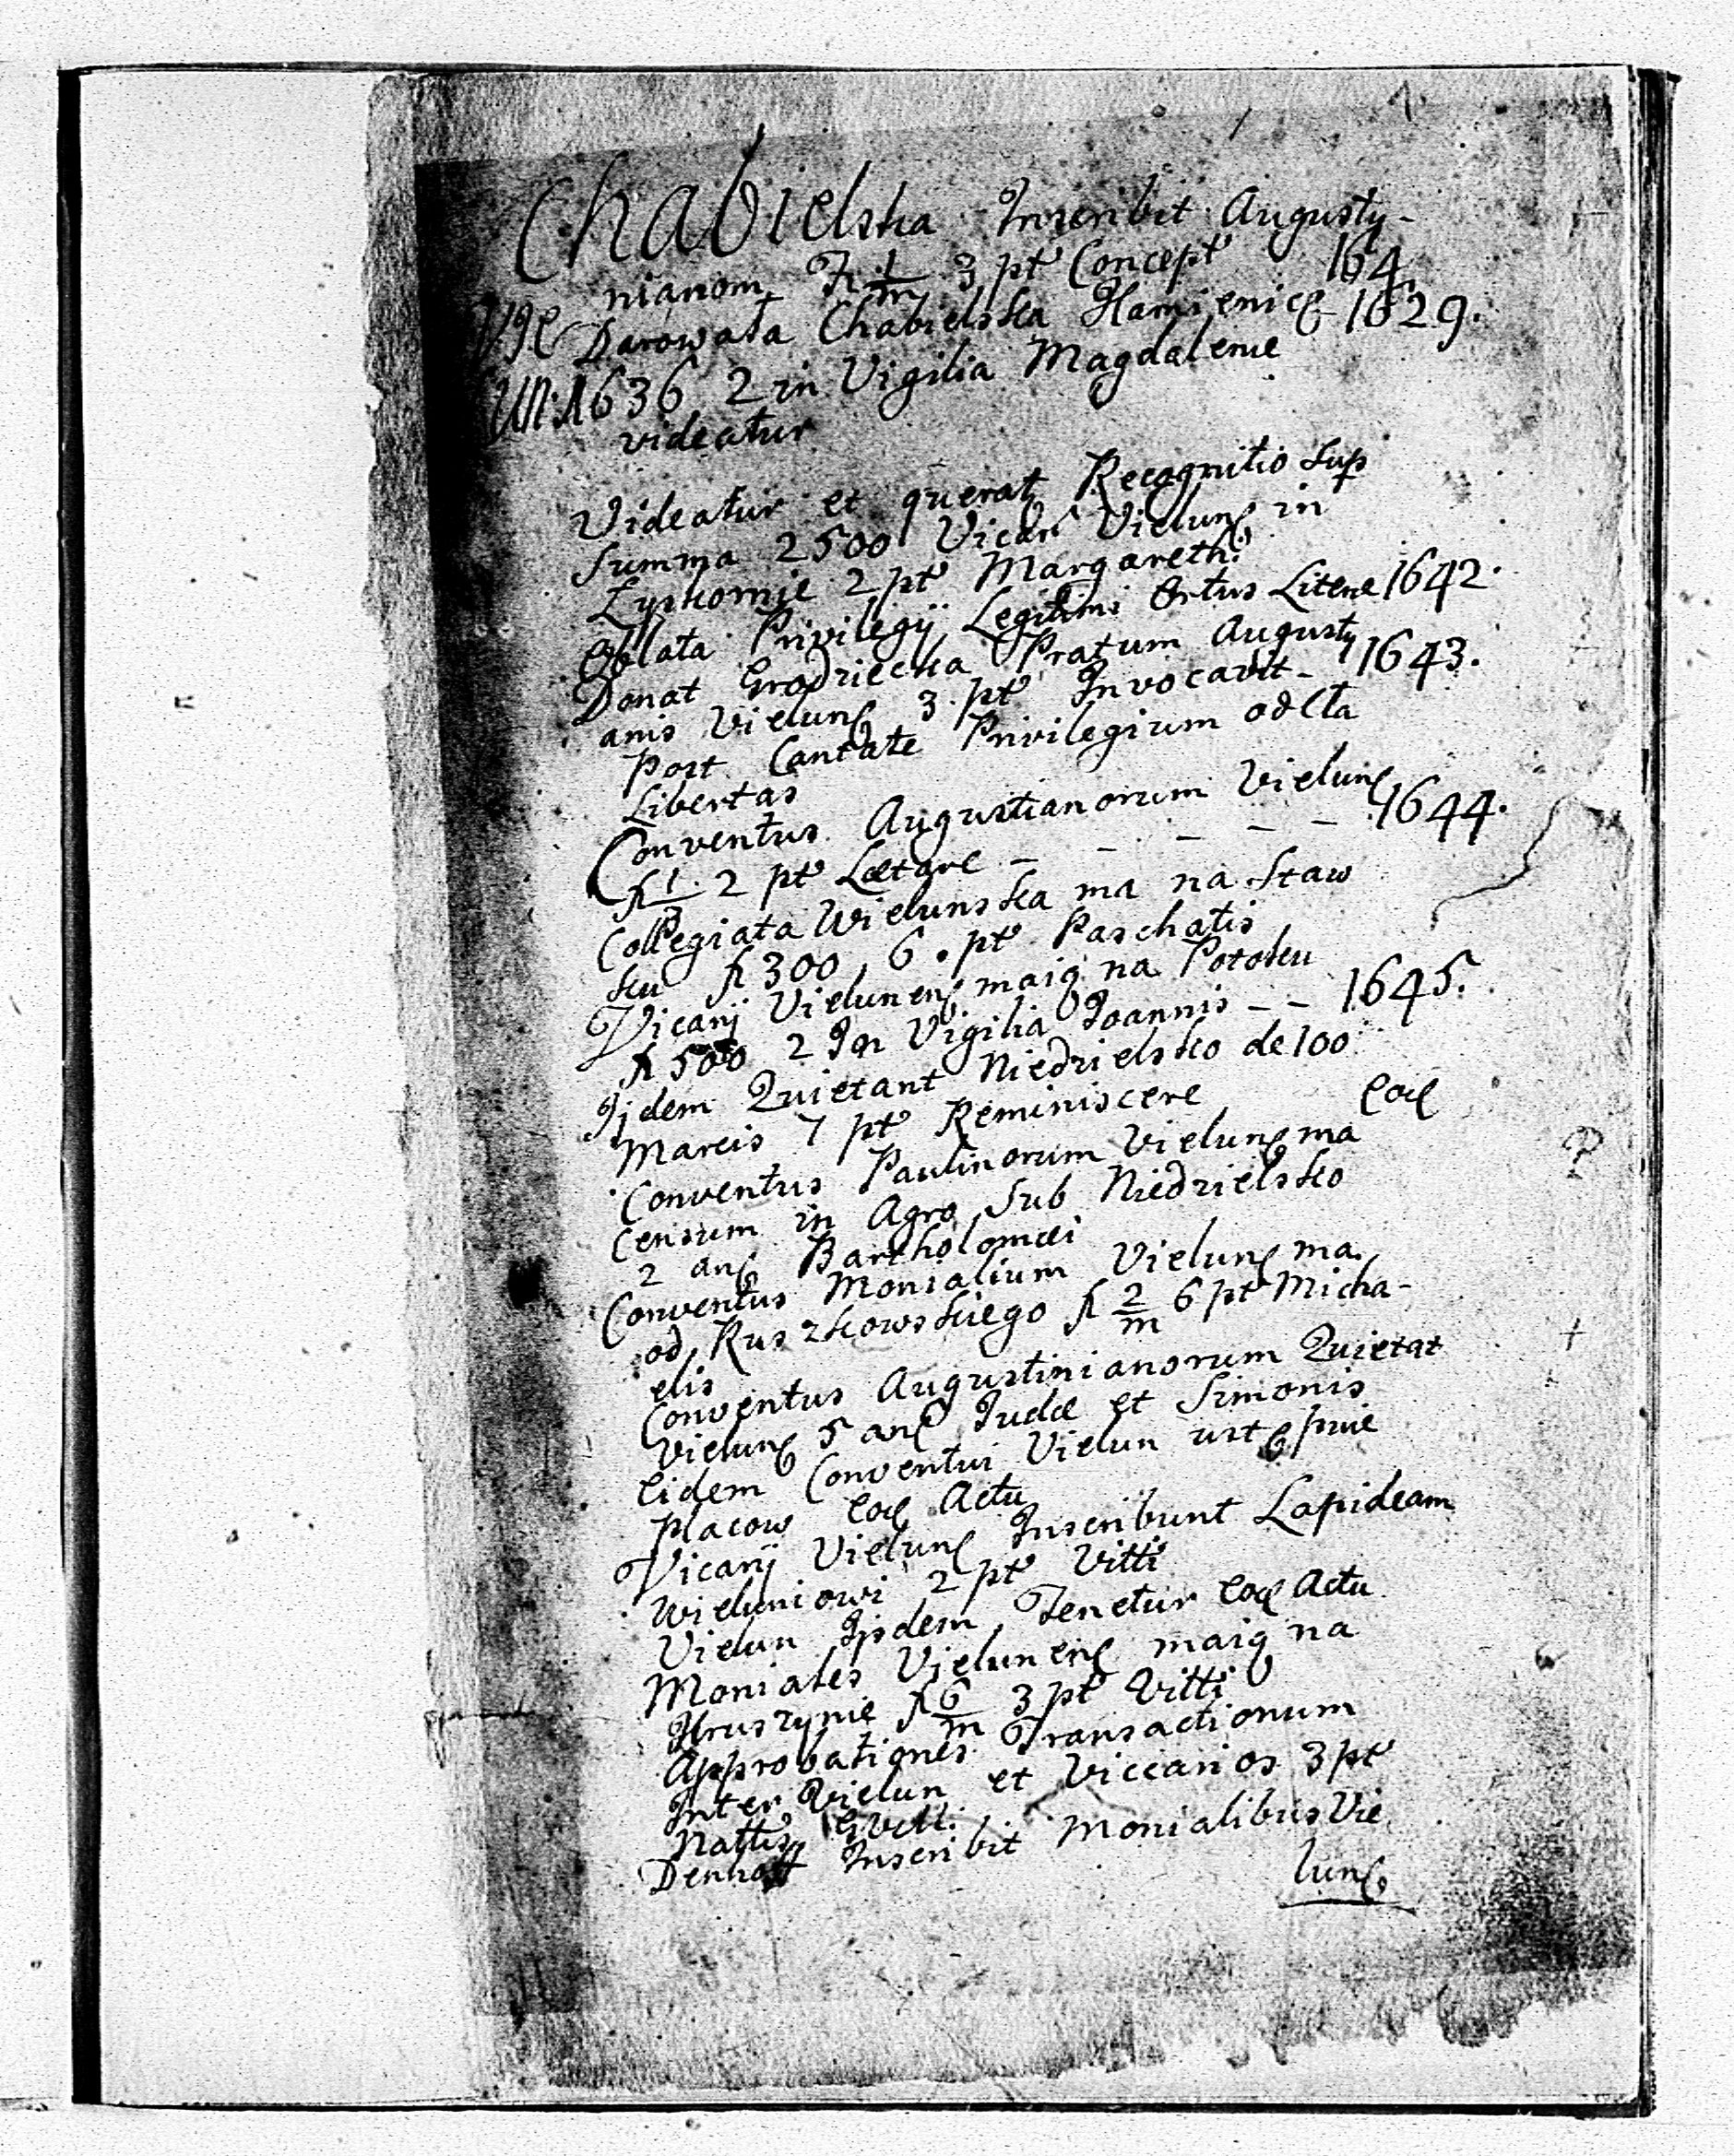 Chabielska Inscribit Augusty-
nianom Fl 1/m 3 pt Concept 164
Darowała Chabielska Kamienicę 1629.
1636 2 in Vigilia Magdalenæ
videatur
Videatur et querat Recognitio sup
summa 2500 Vicar Vielunę in
Łyskornie 2 pt Margareth:
Oblata Privilegÿ Legitimi Ortus Litere 1642.
Donat Grodziecka Pratum Augusty
anis Vielunę 3. pt Invocavit - 1643.
Post Cantate Privilegium odCła
Libertas
Conventus Augustianorum Vielunę
fl 1. 2 pt Lætare - - - - - 1644.
Collegiata Wielunska ma na Staw
ku fl 300, 6. pt Paschatis
Vicarÿ Vielunenę maią na Potoku
fl 500 2 In Vigilia Joannis - - 1645.
Ijdem Quietant Niedzielsko de 100
Marcis 7 pt Reminiscere eoę
Conventus Paulinorum Vielunę ma
Censum in Agro sub Niedzielsko
2 anę Bartholomæi
Conventus Monialium Vielunę ma
od Ruszkowskiego fl 2/m 6 pt Micha-
elis
Conventus Augustinianorum Quietat
Vielunę 5 anę Judæ et Simonis
Eidem Conventui Vielun ustępuie
placow eoę Actu
Vicarÿ Vielunę Inscribunt Lapideam
Wieluniowi 2 pt Vitti
Vielun Ipsdem Tenetur eoę Actu
Moniales Vielunenę maią na
Kruszynie fl 6/m 3 pt Vitti
Approbationes Transactionum
Inter Vielun et Viccarios 3 pt
Denhoff Inscribit Monialibus Vie
lunę